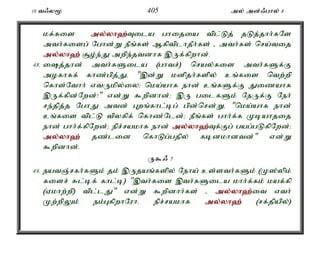 10 வஃலமூ 405 அல் அன்ஃபால் 8
மக்களை அல்லாஹ்வுடைய பாதையை விட்டுத் தடுத்தார்களே
அவர்களைப் போன்று நீங்கள் ஆகிவிடாதீர்கள் , அவர்கள் செய்வதை
அல்லாஹ் சூழ்ந்து அறிந்தவனாக இருக்கிறான்.
48. ஷைத்தான் அவர்களுடைய (பாவச்) செயல்களை அவர்களுக்கு
அழகாகக் காண்பித்து, "இன்று மனிதர்களில் உங்களை வெற்றி
கொள்வோர் எவருமில்லை; மெய்யாக நான் உங்களுக்கு துணையாக
இருக்கின்றேன்!" என்று கூறினான்; இரு படைகளும் நேருக்கு நேர்
சந்தித்த போது அவன் புறங்காட்டிப் பின்சென்று, "மெய்யாக நான்
உங்களை விட்டு விலகிக் கொண்டேன்; நீங்கள் பார்க்க முடியாததை
நான் பார்க்கிறேன்; நிச்சயமாக நான் அல்லாஹ்வுக்குப் பயப்படுகிறேன்;
அல்லாஹ் தண்டனை கொடுப்பதில் கடினமானவன்" என்று
கூறினான்.
ருகூஃ 7
49. நயவஞ்சகர்களும் தம் இருதயங்களில் நோய் உள்ளவர்களும் (முஸ்லிம்
களைச் சுட்டிக் காட்டி) "இவர்களை இவர்களுடைய மார்க்கம் மயக்கி
(ஏமாற்றி) விட்டது" என்று கூறினார்கள் - அல்லாஹ்வை எவர்
முற்றிலும் நம்புகிறாரோ, நிச்சயமாக அல்லாஹ் (சக்தியில்)